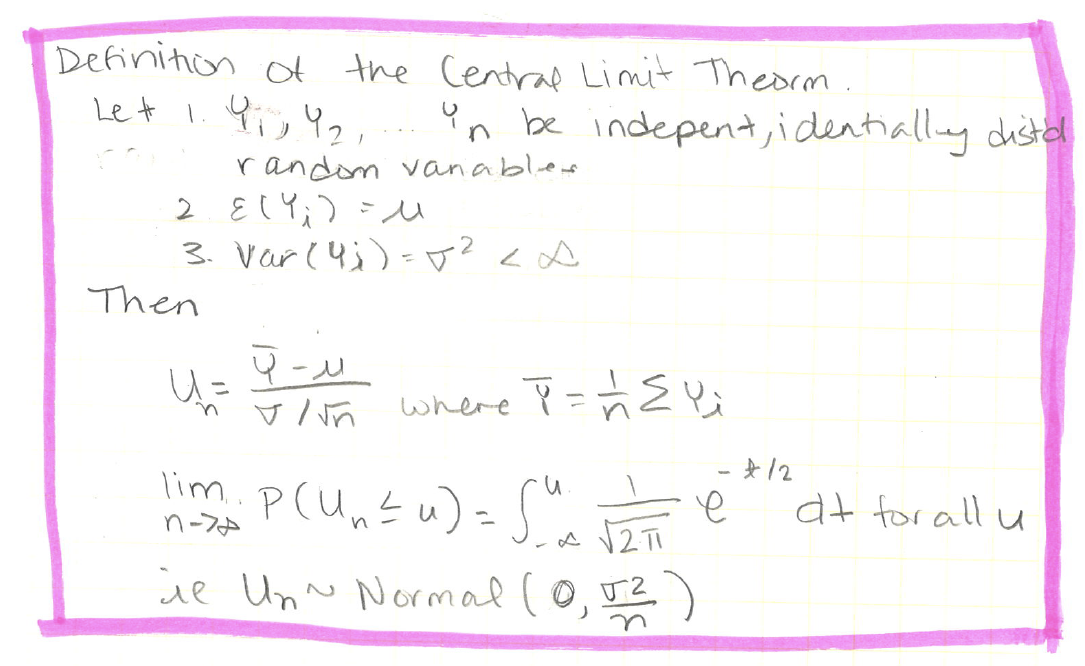 Definition of the Central Limit Theorm.
Let 1. Y₁, Y₂, ... Yn be indepent, identially distd
random variables
2 E(Yi) = μ
3. Var(Yi) = σ² < ∞
Then
Un = (Ȳ - μ) / (σ/√n) where Ȳ = 1/n Σ Yi
lim n->∞ P(Un ≤ u) = ∫_{-∞}^{u} 1/√2π e^{-t/2} dt for all u
ie Un ~ Normal (0, σ²/n)